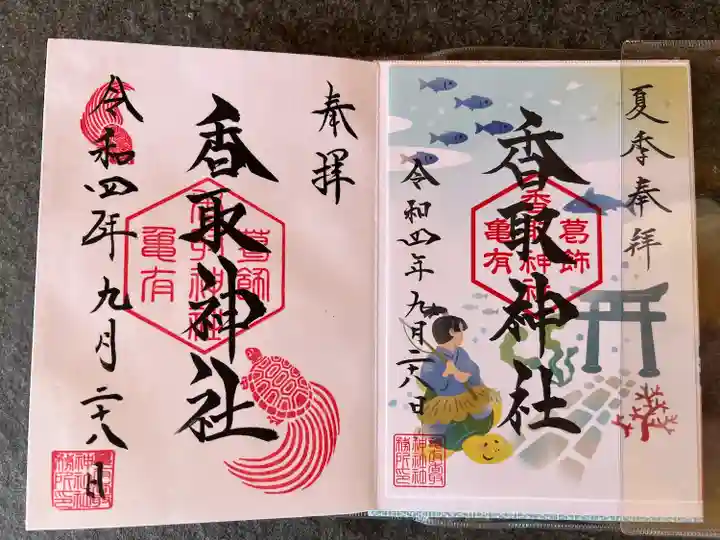 夏季奉拝
香取神社
葛飾
香取神社
亀有
令和四年九月二十八日
奉拝
香取神社
葛飾
香取神社
亀有
令和四年九月二十八日